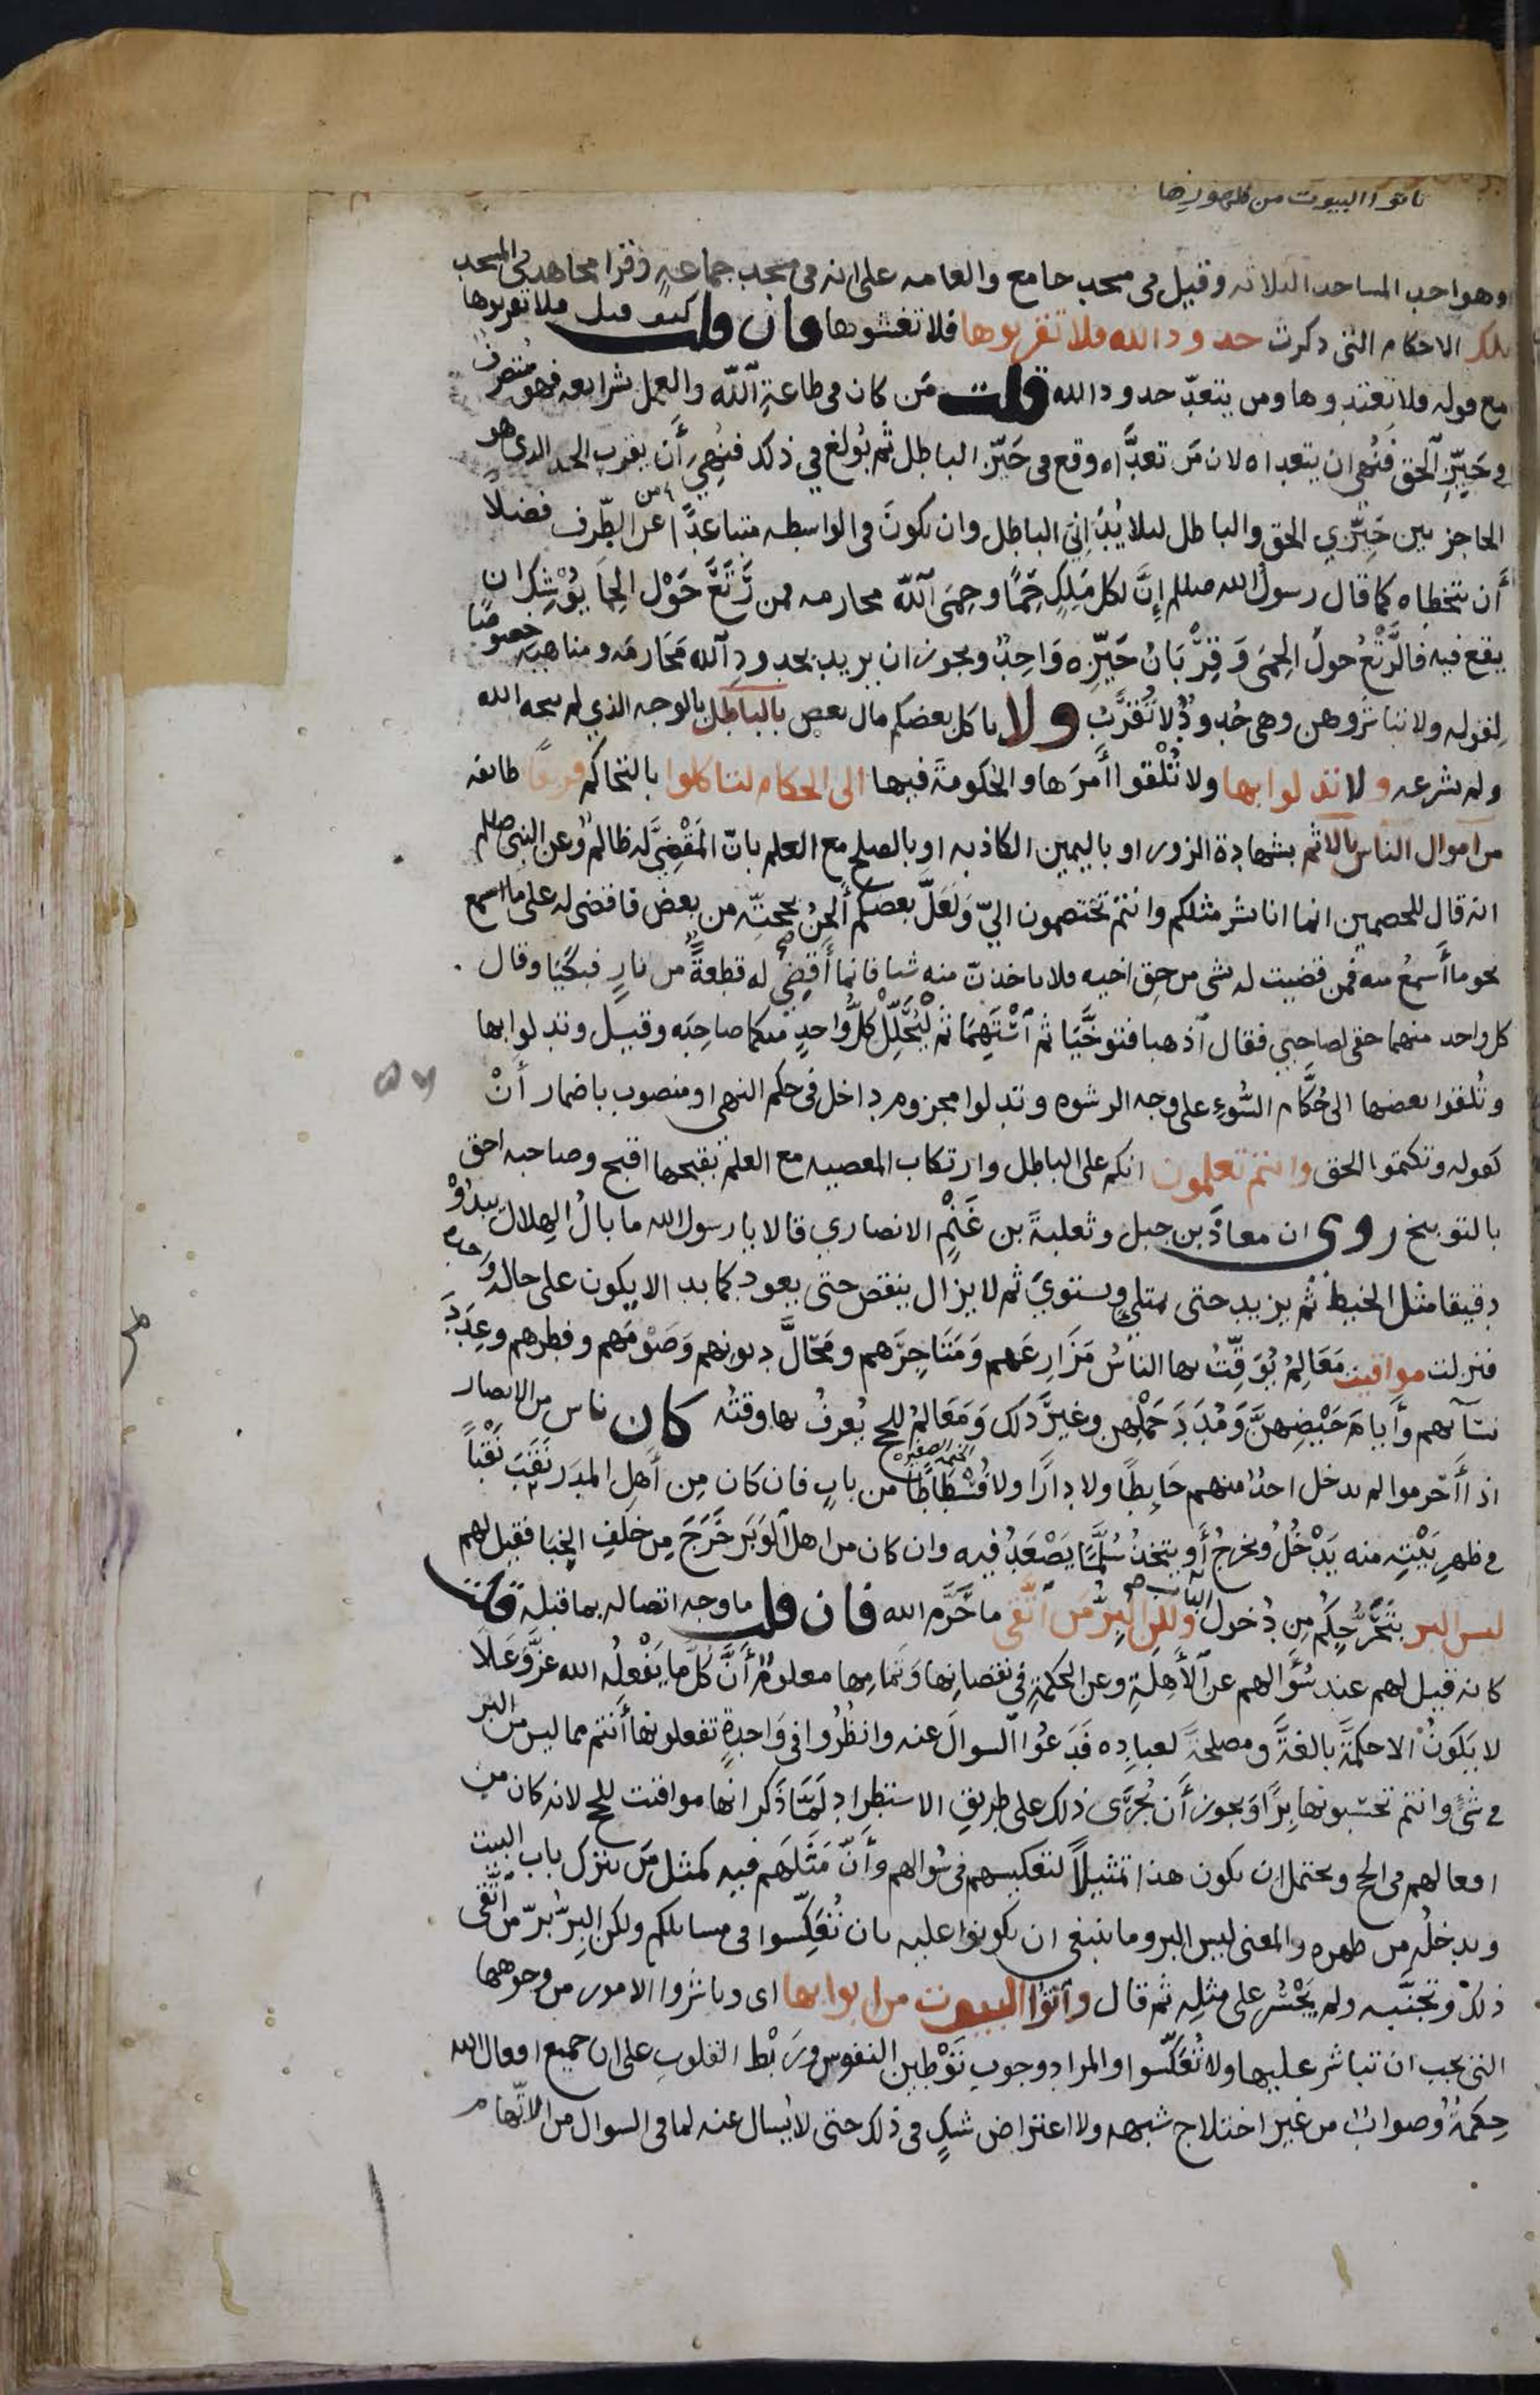 تاتوا البيوت من ظهورها
وهو احد المساجد الثلاثه وقيل في مسجد جامع والعامه على انه في مسجد جماعةٍ وقرا مجاهد في المسجد
تلك الاحكام التي ذكرت حدود الله فلا تقربوها فلا تغشوها فان قلت كيف قيل فلا تقربوها
مع قوله فلا تعتدوها ومن يتعدّ حدود الله قلت مَن كان في طاعةِ اللّه والعمل بشرايعه فهو مُتصرف
في حَيِّزِ الحق فنُهى ان يتعداه لان مَن تعدَّاه وقع في حَيّز الباطل ثم بُولغ في ذلك فنُهِيَ أَن يقرب الحد الذي هو
الحاجز بين حَيّزي الحق والباطل لئلا يُدَاني الباطل وان يكونَ في الواسطه متباعدًا عن الطّرف فضلًا
أَن يتخطاه كما قال رسول الله صللم إِنَّ لكل مَلِكٍ حِمًا وحِمَى اللّه محارمه فمن رَتَعَ حَوْل الحِمَا يُوْشِك ان
يقع فيه فالرَّتْعُ حولَ الحِمَى وَقِرْبَانُ حَيّزِه وَاحِدٌ ويجوز ان يريد بحدودِ الله مَحَارمَه ومناهيَه خصوصًا
لِقوله ولا تباشروهن وهى حُدودٌ لا تُقْرَبُ ولا ياكل بعضكم مال بعض بالباطل بالوجه الذي لم يبحه الله
ولم يشرعه و لا تدلوا بها ولا تُلْقوا أَمرَها والحُكومَةَ فيها الى الحكام لتاكلوا بالتحاكم فريقًا طايفه
من اموال الناس بالاثم بشهادة الزور او باليمين الكاذبه او بالصلح مع العلم بانّ المَقْضِيَّ له ظالمٌ وعن النبى صللم
انه قال للخصمين انما انا بشر مثلكم وانتم تختصمون اليّ وَلَعَلَّ بعضكم أَلحَنُ بحجتِه من بعض فاقضى له على ما اسمع
نحو ما أَسمعُ منه فمن قضيت له بشى من حق اخيه فلا ياخذنّ منه شيا فانما أَقضِى له قطعةً من نارٍ فبكَيَا وقال
كل واحد منهما حقى لصاحبي فقال اذهبا فتوخَّيَا ثم استَهِمَا ثم لْيُحَلِّلْ كلُّ واحدٍ منكما صاحِبَه وقيل وتدلوا بها
وتُلقوا بعضها الى حُكَّام السُّوءِ على وجه الرشوه وتدلوا مجزوم داخل في حكم النهى او منصوب باضمار أَنْ
كقوله وتكتموا الحق وانتم تعلمون انكم على الباطل وارتكاب المعصيه مع العلم بقبحها اقبح وصاحبه احق
بالتوبيخ روى ان معاذَ بن جبل وثعلبةَ بن غَنْمٍ الانصاري قالا يا رسول الله ما بالُ الهلال يبدُوْ
دقيقا مثل الخيط ثم يزيد حتى يمتلي ويستويَ ثم لا يزال ينقص حتى يعود كما بدا لا يكون على حاله واحده
فنزلت مواقيت مَعَالِمُ يُوَقِّتُ بها الناسُ مَزَارِعَهم وَمَتَاجِرَهم ومَحَالَّ ديونهم وَصَوْمَهم وفطرهم وعِدَدَ
نسَآئهم وأَيامَ حَيْضِهنَّ وَمُدَدَ حَمْلِهن وغيرَ ذلك وَمَعَالمُ للحج يُعرفُ بها وقتُه كان ناس من الانصار
اذا أَحرموا لم يدخل احدٌ منهم حَايطًا ولا دارًا ولا فُسْطَاطًا الخيمة الصغيرة من بابٍ فان كان مِن أَهلِ المدَر نَقَبَ نَقْبًا
في ظهرِ بَيْتِه منه يَدْخُلُ ويخرجُ أَو يتخذُ سُلَّمًا يَصْعَدُ فيه وان كان من اهل الوَبَر خَرَجَ مِن خلفِ الخِبا فقيل لهم
ليس البر بتَحَرُّجِكم مِن دُخولِ الباب ولكن البِرَّ مَن اتَّقى ما حَرَّم الله فان قلت ما وجه اتصاله بما قبله قلت
كانه قيل لهم عند سُؤالهم عن الأَهِلَّةِ وعن الحكمةِ في نقصانها وَتمامِها معلومٌ أَنَّ كلَّ ما يَفْعلُه الله عزّ وَعَلَا
لا يَكونُ الا حكمَةً بالغةً ومصلحَةً لعبادِه فَدَعُوا السوالَ عنه وانظُرُوا في وَاحِدةٍ تفعلونها أَنتم مما ليس من البر
في شئٍ وانتم تحسَبونها بِرًّا ويجوز أَن يُجْرَى ذلك على طريقِ الاستطرادِ لَمَّا ذَكر انها مواقيت للحج لانه كان من
افعالهم في الحج ويحتمل ان يكون هذا تمثيلاً لتعكيسهم في سُوالهم وأَنّ مَثَلَهم فيه كمثل مَن يترك باب البيت
ويدخلُه من ظهره والمعنى ليس البر وما ينبغى ان يكونوا عليه بان تُعَكِّسوا في مسايلكم ولكن البِرَّ بِرّ من اتَّقى
ذلك وتجنَّبه ولم يَجْسُر على مثلِه ثم قال وأتوا البيوت من ابوابها اى وباشروا الامور من وجوهها
التى يجب ان تباشر عليها ولا تُعَكِّسوا والمراد وجوب تَوْطين النفوس ورَبْط القلوب على ان جميع افعال الله
حِكمَةٌ وصوابٌ من غير اختلاج شبهه ولا اعتراض شكٍ في ذلك حتى لا يُسال عنه لما في السوال من الاتّهام